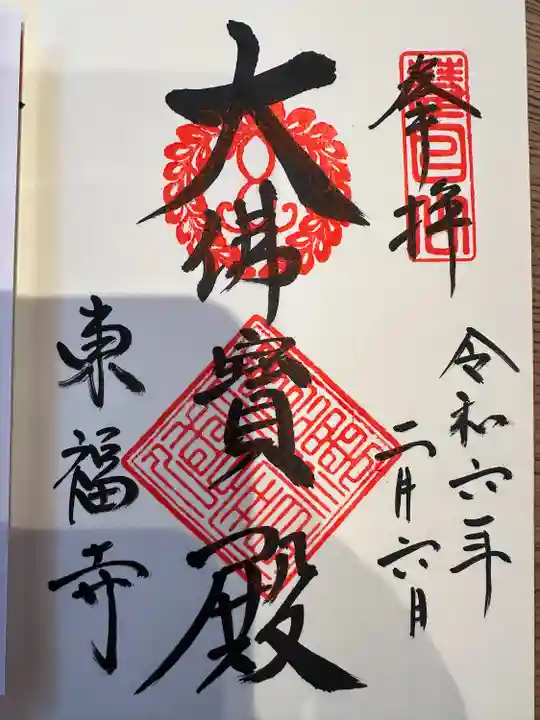 奉拝
令和六年
二月六日
大佛寶殿
東福寺